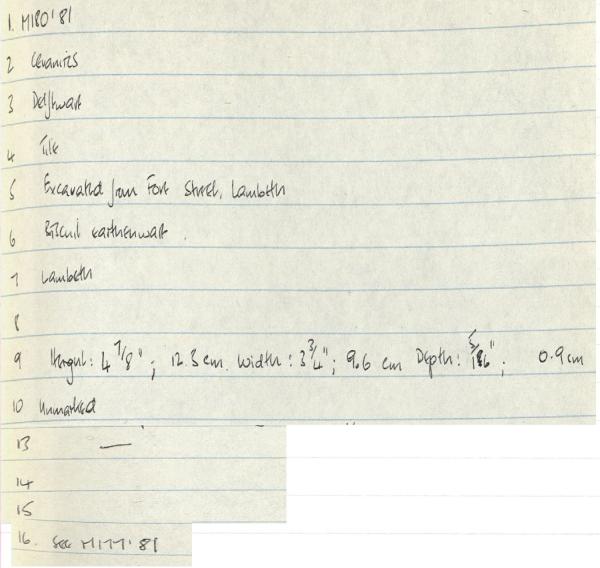 1. M180'81
2 Ceramics
3 Delftware
4 Tile
5 Excavated from Fore Street, Lambeth
6 Biscuit earthenware.
7 Lambeth
8
9 Height: 4 7/8"; 12.3 cm. Width: 3 3/4"; 9.6 cm Depth: 5/16"; 0.9 cm
10 Unmarked
13 —
14
15
16. See M177'81